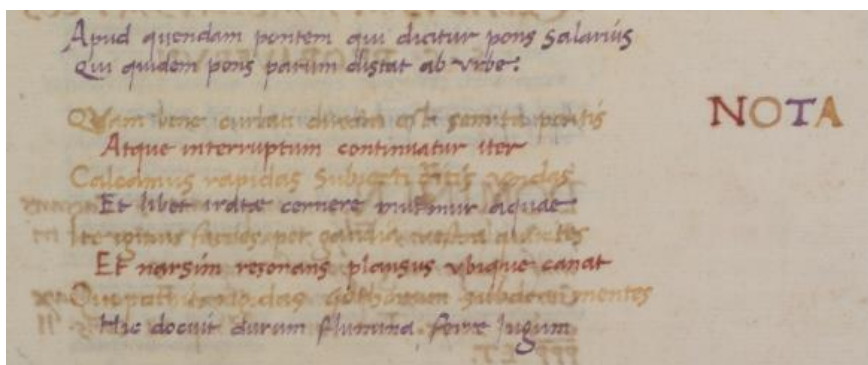 Apud quendam pontem qui dicitur pons Salarius
Qui quidem pons parum distat ab vrbe:
NOTA
Quam bene directa est semita pontis
Atque interruptum continuatur iter
Calcamus rapidas subiecti vndas
Et libet iratae cernere murmur aquae
Ite igitur faciles per gaudia vestra
Et narsim resonans plausus vbique canat
Qui gothorum subdere mentes
Hic docuit durum flumina ferre iugum